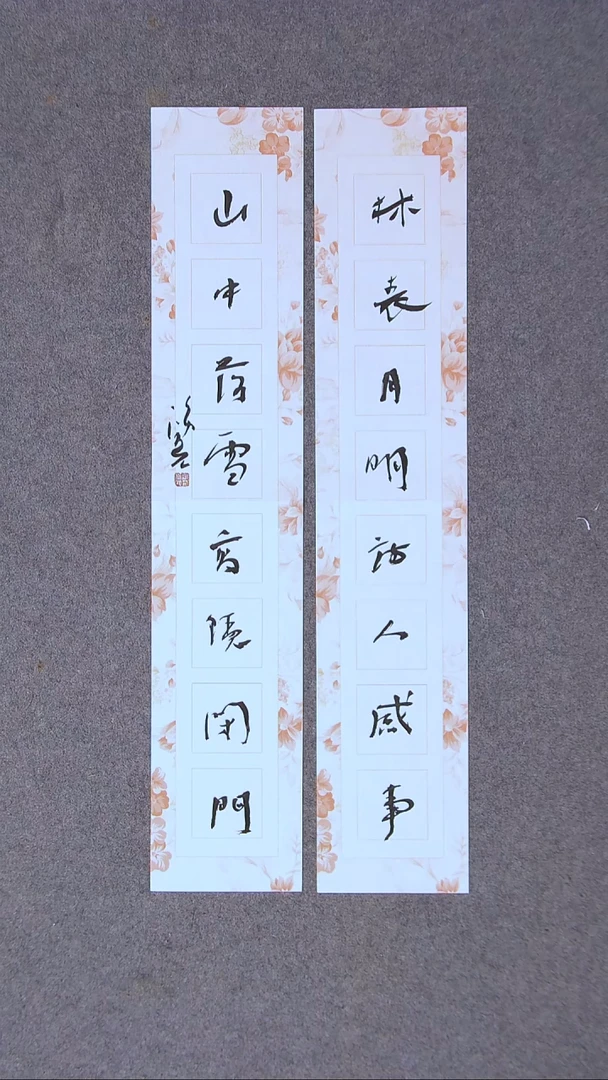 林表月明詩人感事
山中落雪高隱閉門